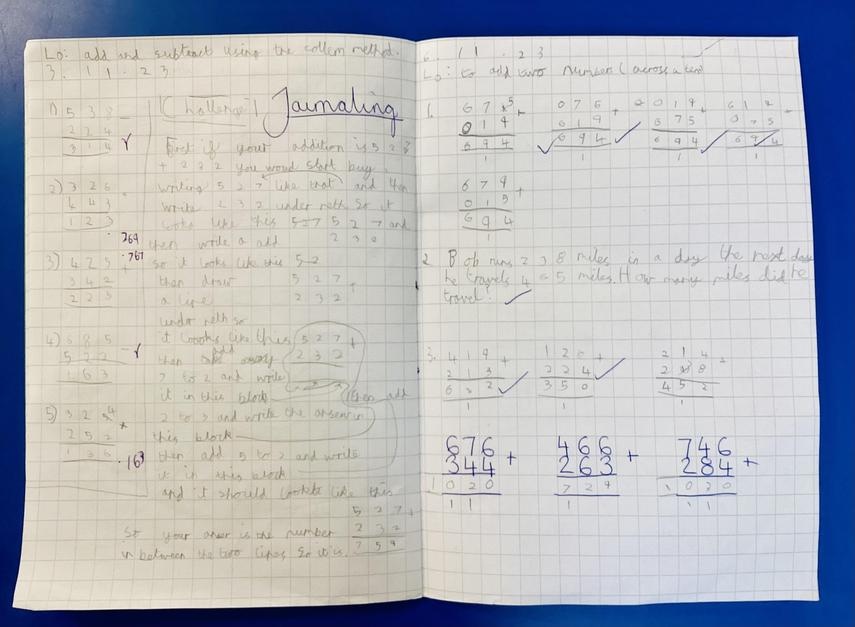 Lo: add and subtract using the collem method.
3. 11.23
1) 5 3 8 -
2 2 4
3 1 4
2) 3 2 6
4 4 3
1 2 3
769
3) 4 2 5 +
767
3 4 2
2 2 3
4) 6 8 5 -
5 2 2
1 6 3
5) 3 2
2 5 2
1 3 6
169
Challenge Jaurnaling
First if your addition is 5 2 7
+ 2 3 2 you woud start buy
writing 5 2 7 like that and then
write 2 3 2 under neth So it
looks like this 527 5 2 7 and
then write a add 2 3
so it looks like this
than draw 5 2 7 +
a line 2 3 2
under neth so
it loooks like this 5 2 7 +
then add 2 3 2
7 to 2 and write
it in this block then add
2 to 3 and write the answer in
this block
then add 5 to 2 and write
it in this block
and it should lookts like this
5 2 7 +
So your anser is the number 2 3 2
in between the two lines So it is. 7 5 9
6. 11.23
Lo: to add two number (across a ten)
1. 6 7 5 +
0 1 9
6 9 4
1
0 7 6 +
6 1 9
6 9 4
1
0 1 9 +
6 7 5
6 9 4
1
6 1 9
0 7 5
6 9 4
1
6 7 9 +
0 1 5
6 9 4
1
2. Bob runs 2 3 8 miles in a day the next day
he travels 4 6 5 miles. How many miles did he
travel.
3. 4 1 9 +
2 1 3
6 3 2
1
1 2 6 +
2 2 4
3 5 0
1
2 1 4 +
2 3 8
4 5 2
1
676
344 +
1 0 2 0
1 1
466
263 +
7 2 9
1
746
284 +
1 0 3 0
1 1